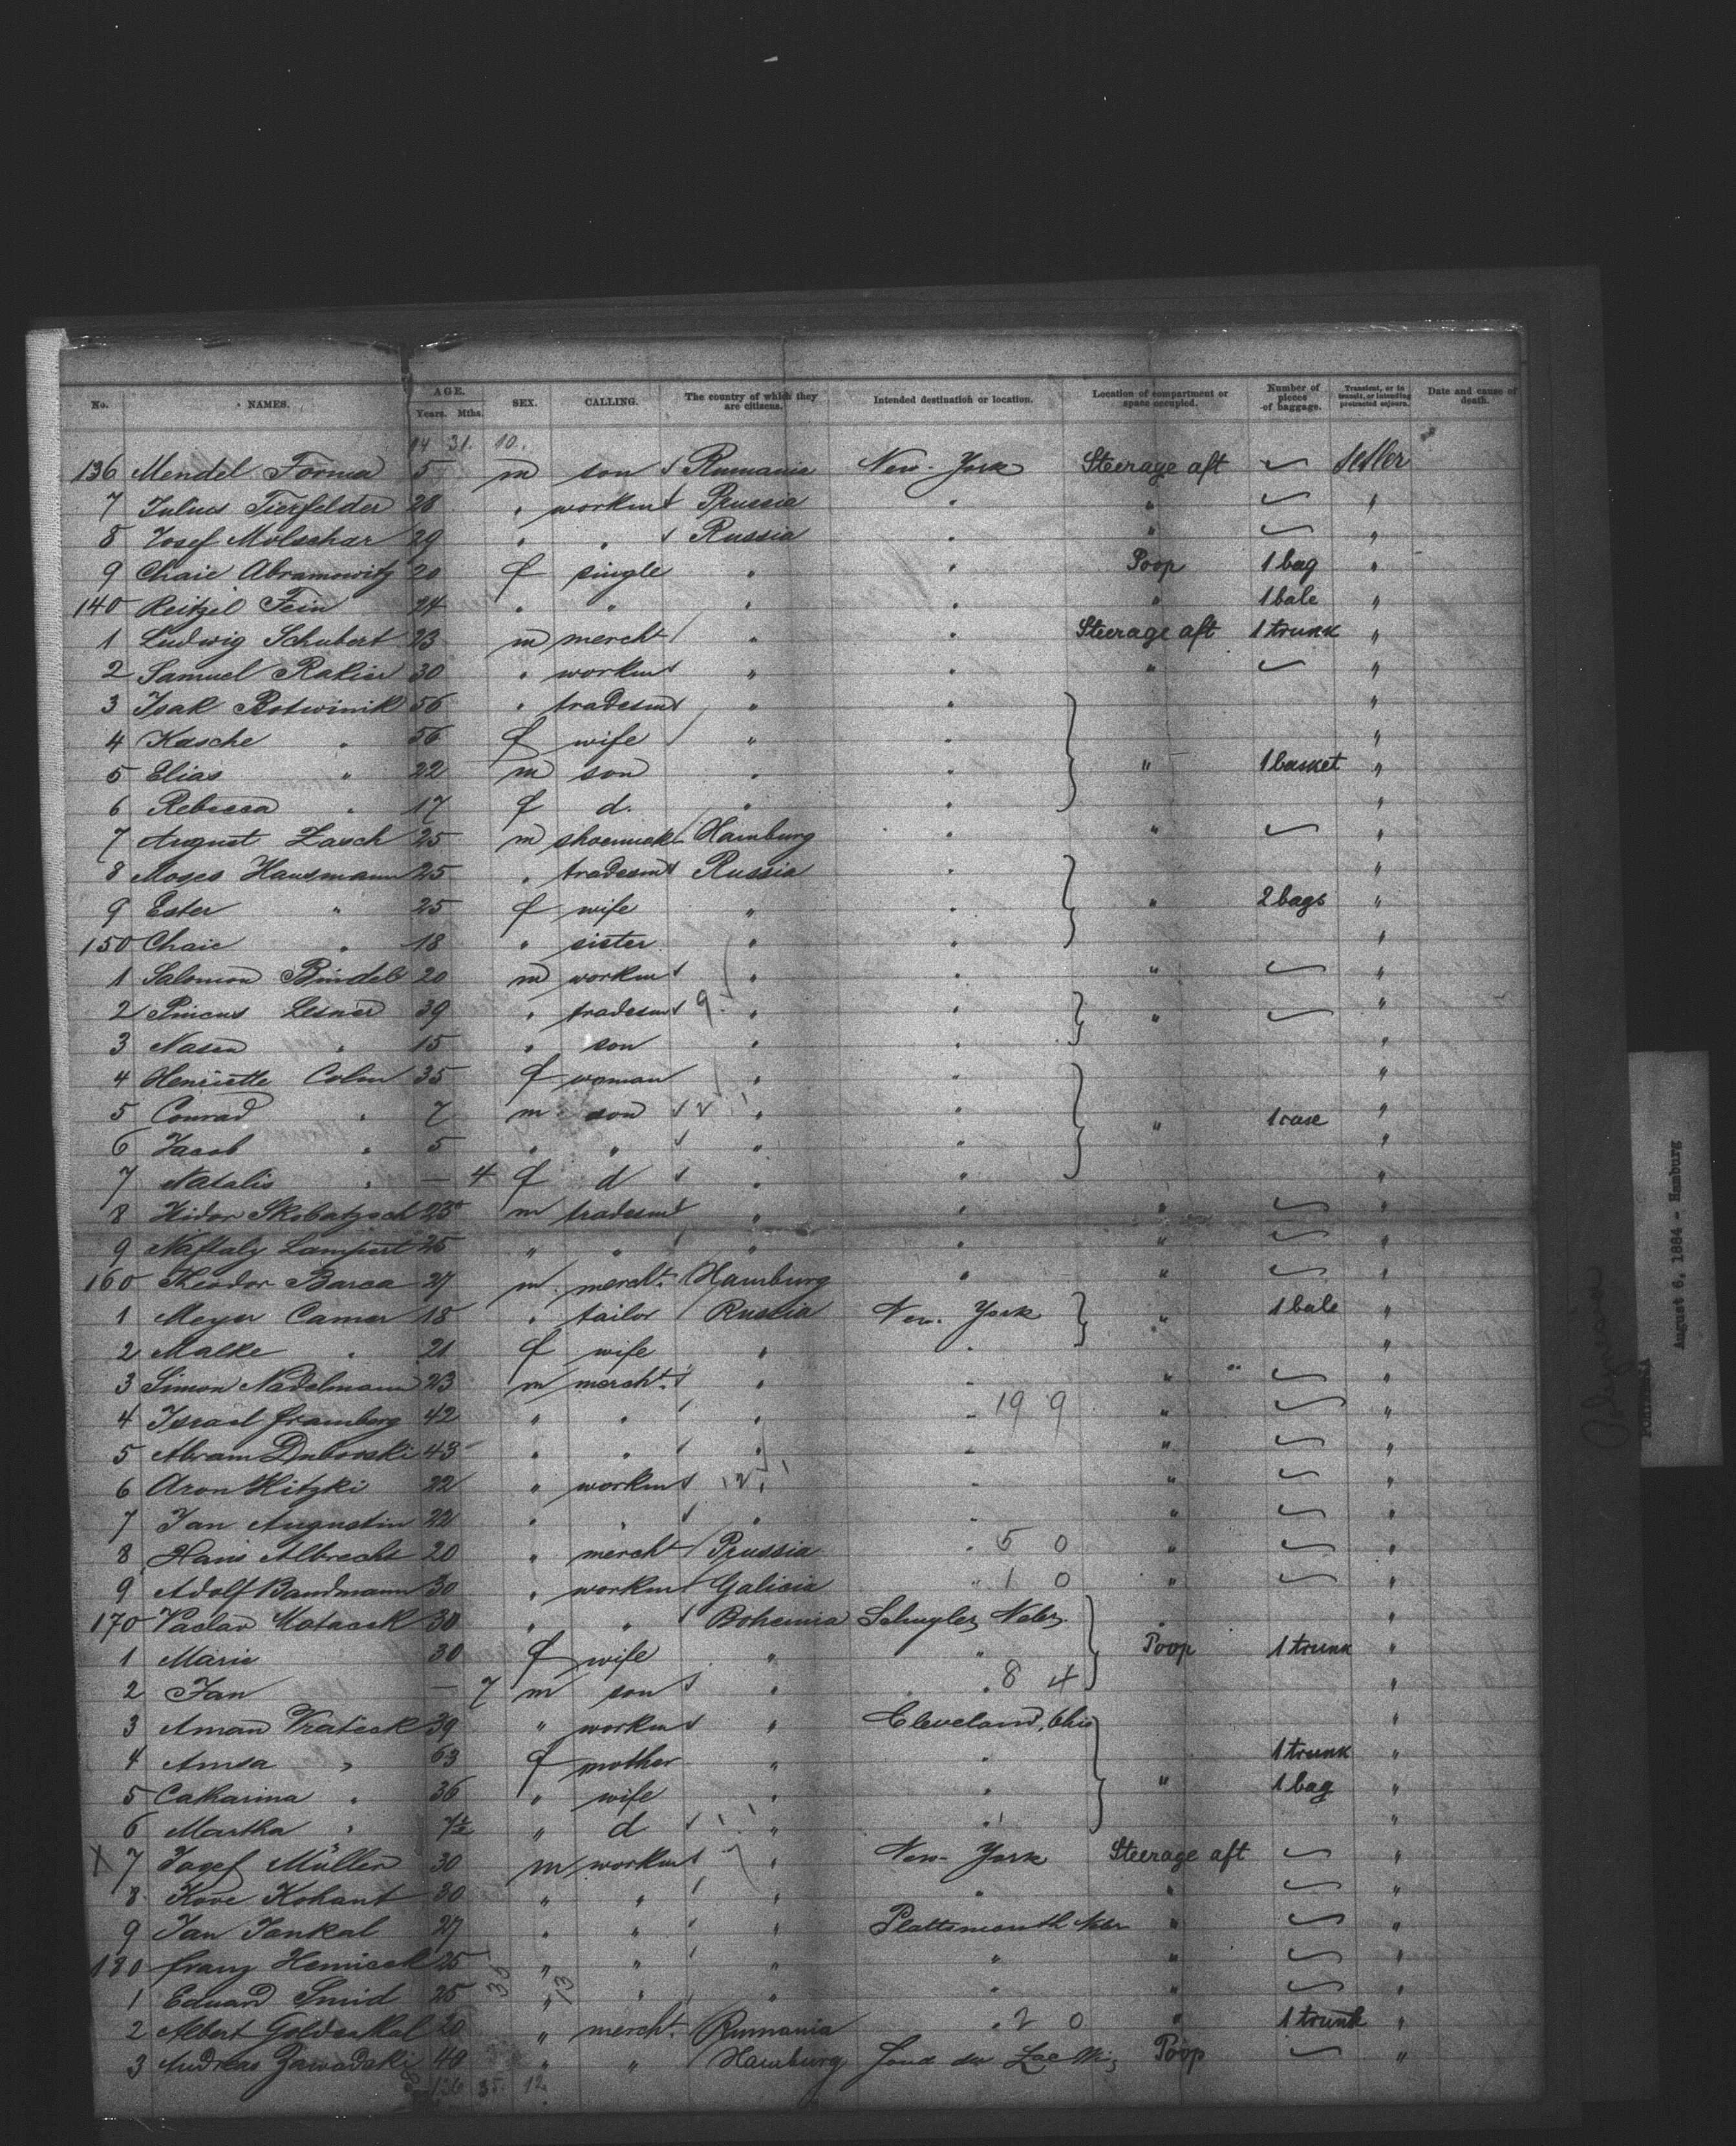 No. NAMES. AGE. Years. Mths. SEX. CALLING. The country of which they are citizens. Intended destination or location. Location of compartment or space occupied. Number of pieces of baggage. Transient, or in transit, or intending protracted sojourn. Date and cause of death.
14 31. 10.
136 Mendel Forma 5 m son Rumania New-York Steerage aft Settler
7 Julius Tierfelder 28 " workmt Prussia " " "
8 Josef Molschar 29 " " Russia " " "
9 Chaie Abramowitz 20 f single " " Poop 1 bag "
140 Reitzil Fein 24 " " " " " 1 bale "
1 Ludwig Schubert 23 m mercht " " Steerage aft 1 trunk "
2 Samuel Rakier 30 " workmt " " " "
3 Isak Botwinik 56 " tradesmt " " "
4 Kasche " 56 f wife " " "
5 Elias " 22 m son " " " 1 basket "
6 Rebecca " 17 f d. " " "
7 August Zasch 25 m shoemak Hamburg " " "
8 Moses Hausmann 25 " tradesmt Russia " "
9 Ester " 25 f wife " " " 2 bags "
150 Chaie " 18 " sister " " "
1 Salomon Bindels 20 m workmt " " " "
2 Pincus Lesner 39 " tradesmt 9 " " " "
3 Nasen " 15 " son " " "
4 Henriette Colm 35 f woman " " "
5 Conrad " 7 m son 2 " " " 1 case "
6 Jacob " 5 " " " " "
7 Natalis " — 4 f d " " "
8 Hidor Skobatzsch 25 m tradesmt " " " "
9 Naftaly Lampert 25 " " " " " "
160 Theodor Barca 27 m mercht. Hamburg " " "
1 Meyer Camer 18 " tailor Russia New-York " 1 bale "
2 Malke " 21 f wife " " "
3 Simon Nadelmann 23 m mercht. " " " "
4 Israel Framberg 42 " " " " 19 9 " "
5 Abram Dubovski 43 " " " " " "
6 Aron Hitzki 22 " workmt 2 " " " "
7 Jan Augustin 22 " " " " " "
8 Hans Albrecht 20 " mercht Prussia " 5 0 " "
9 Adolf Bandmann 30 " workmt Galicia " 1 0 " "
170 Vaclav Kotacek 30 " " Bohemia Schuyler, Nebr. "
1 Marie 30 f wife " " Poop 1 trunk "
2 Jan — 7 m son " " 8 4 "
3 Aman Vraticek 39 " workmt " Cleveland, Ohio "
4 Anna " 63 f mother " " 1 trunk "
5 Catharina " 36 " wife " " " 1 bag "
6 Martha " 7½ " d " " "
X 7 Josef Müller 30 m workmt " New-York Steerage aft "
8 Kove Kohant 30 " " " " " "
9 Jan Jankal 27 " " " Plattsmouth Nebr " "
180 Franz Hemicek 25 " " " " " "
1 Eduard Smid 25 " " " " " "
35 13
2 Albert Goldenthal 20 " mercht. Rumania " 2 0 " 1 trunk "
3 Andreas Zawadski 40 " " Hamburg Fond du Lac Wis Poop "
136 35. 12
POLYNESIA
August 6, 1884 - Hamburg
Polynesia